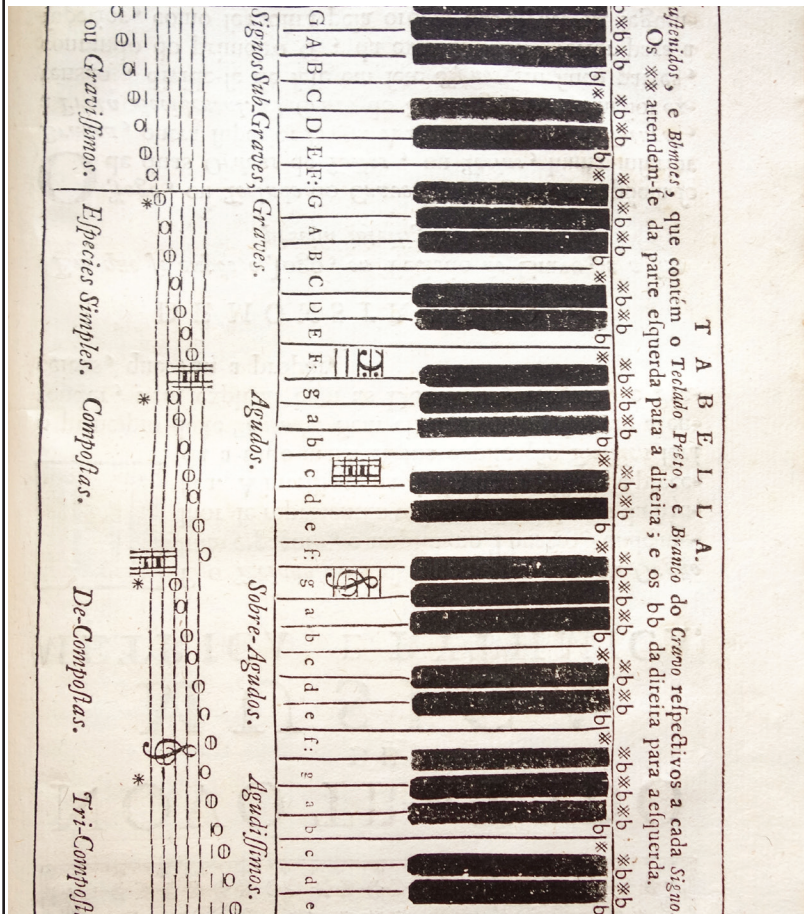 T A B E L L A.
uſtenidos, e Bbmoes, que contém o Teclado Preto e Branco do Cravo reſpectivos a cada Signo
Os ※※ attendem-ſe da parte eſquerda para a direita; e os bb da direita para aeſquerda.
※b※b ※b※b ※b※b※b ※b※b ※b※b※b ※b※b ※b※b※b ※b※b ※b※b※b ※b※b
b※ b※ b※ b※ b※ b※ b※ b※ b※
G A B C D E F: G A B C D E F g a b c d e f: g a b c d e f: g a b c d e
Signos Sub-Graves, Graves. Agudos. Sobre-Agudos. Agudiſſimos.
ou Graviſſimos. Eſpecies Simples. Compoſtas. De-Compoſtas. Tri-Compoſt